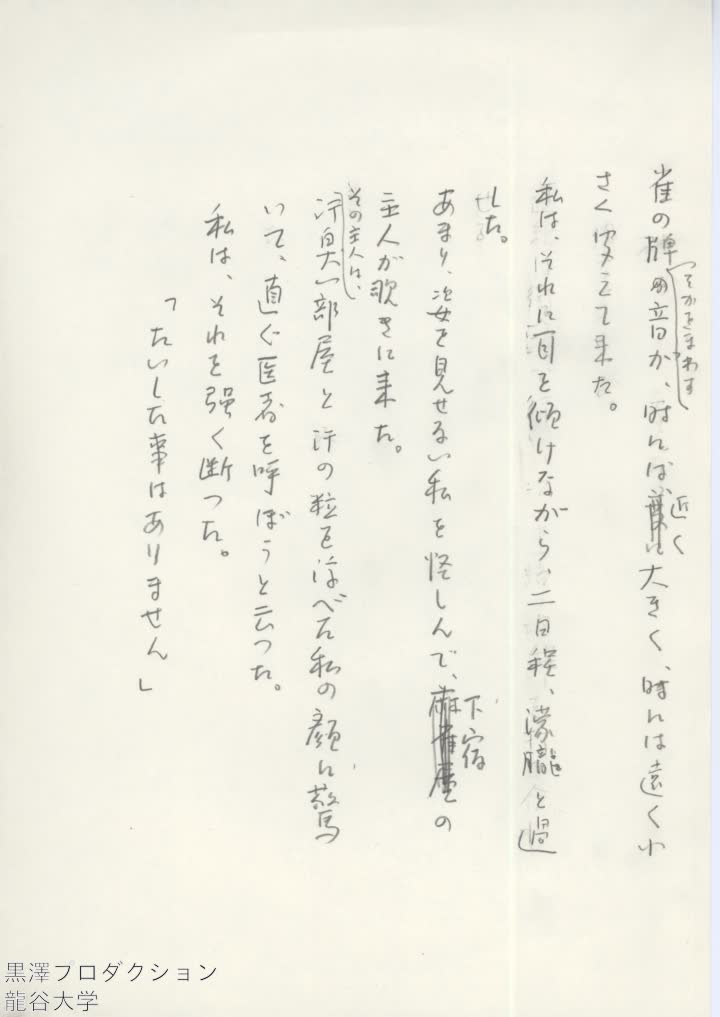 雀の牌の音が、時には近く大きく、時には遠く小
つかきまわす
さく聞えて来た。
私は、それに耳を傾けながら、二日程、朦朧と過
した。
あまり、姿を見せない私を怪しんで、下宿の
主人が覗きに来た。
その主人は、
汗臭い部屋と汗の粒を浮べた私の顔に驚
いて、直ぐ医者を呼ぼうと云った。
私は、それを強く断った。
「たいした事はありません」
黒澤プロダクション
龍谷大学